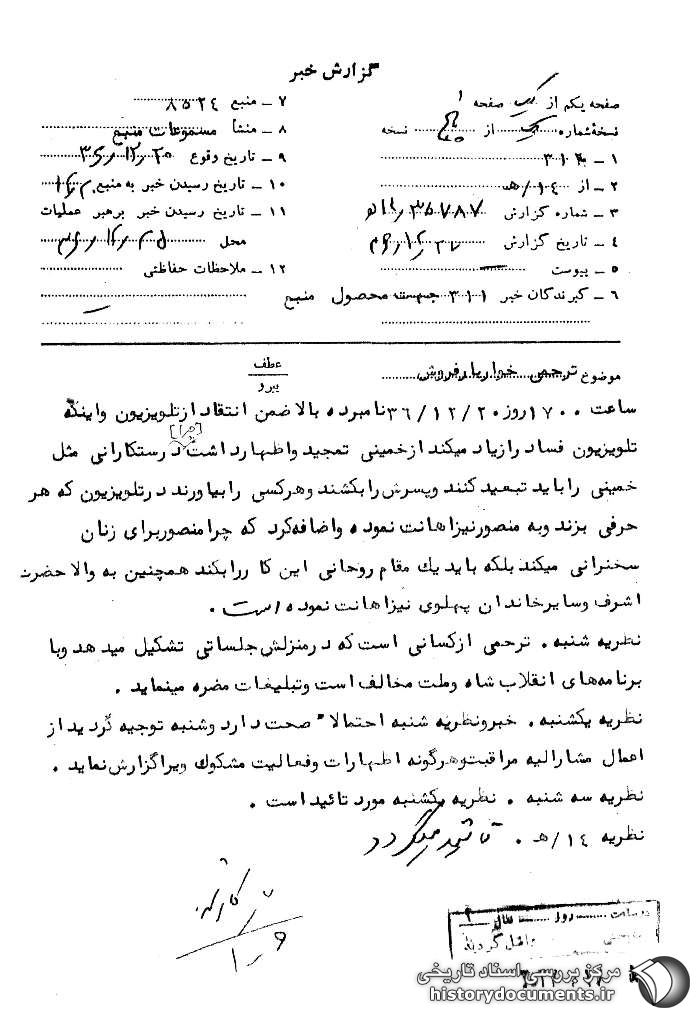 گزارش خبر
صفحه یکم از یک صفحه
نسخه شماره یک از پنج نسخه
۱ ـ ۳۱۲
۲ ـ از ۱۴/هـ
۳ ـ شماره گزارش ۳۵۷۸۷/۱۴ه
۴ ـ تاریخ گزارش
۵ ـ پیوست —
۶ ـ گیرندگان خبر ۳۱۱ جهت محصول منبع
۷ ـ منبع ۸۵۲۴
۸ ـ منشأ مسموعات منبع
۹ ـ تاریخ وقوع ۳۶/۱۲/۲۰
۱۰ ـ تاریخ رسیدن خبر به منبع
۱۱ ـ تاریخ رسیدن خبر برهبر عملیات
محل ۳۶/۱۲/۲۵
۱۲ ـ ملاحظات حفاظتی
موضوع ترحمی خواربار فروش
عطف
پیرو
ساعت ۱۷۰۰ روز ۳۶/۱۲/۲۰ نامبرده بالا ضمن انتقاد از تلویزیون و اینکه
تلویزیون فساد را زیاد میکند از خمینی تمجید و اظهار داشت درستکارانی مثل
خمینی را باید تبعید کنند و پسرش را بکشند و هرکسی را بیاورند در تلویزیون که هر
حرفی بزند و به منصور نیز اهانت نموده و اضافه کرد که چرا منصور برای زنان
سخنرانی میکند بلکه باید یك مقام روحانی این کار را بکند همچنین به والاحضرت
اشرف و سایر خاندان پهلوی نیز اهانت نموده است.
نظریه شنبه . ترحمی از کسانی است که در منزلش جلساتی تشکیل میدهد و با
برنامه‌های انقلاب شاه و ملت مخالف است و تبلیغات مضره مینماید .
نظریه یکشنبه . خبر و نظریه شنبه احتمالا" صحت دارد و شنبه توجیه گردید از
اعمال مشارالیه مراقبت و هرگونه اظهارات و فعالیت مشکوك ویرا گزارش نماید .
نظریه سه شنبه . نظریه یکشنبه مورد تائید است .
نظریه ۱۴/هـ . تائید میگردد
در ساعت روز سال ۲
بخش واصل گردید
مرکز بررسی اسناد تاریخی
historydocuments.ir